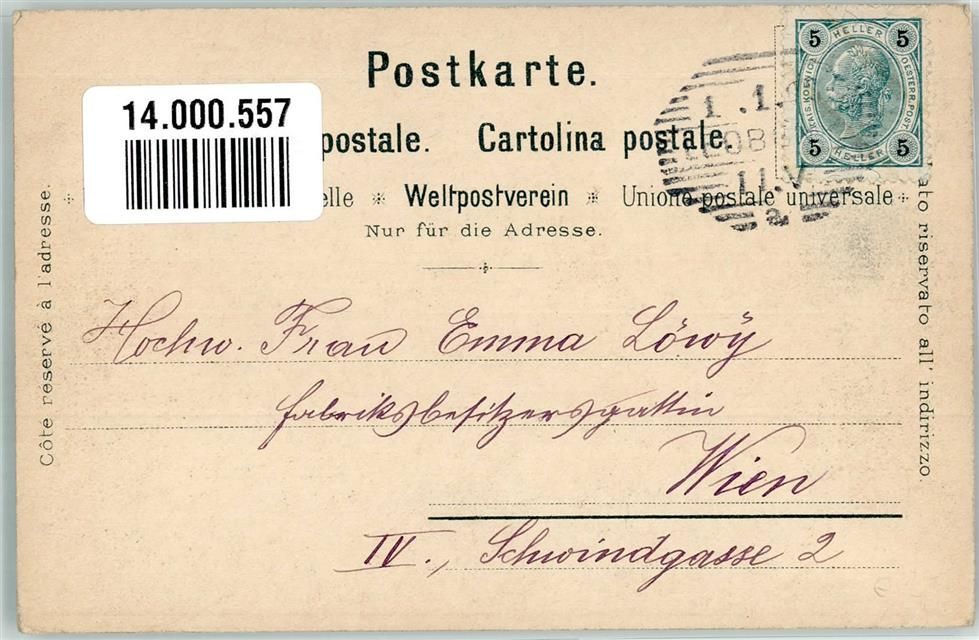 Postkarte.
14.000.557
postale. Cartolina postale.
elle * Weltpostverein * Unione postale universale
Nur für die Adresse.
Côte reservé à l'adresse.
ato riservato all' indirizzo.
5 HELLER 5
KAIS. KOENIGL. OESTERR. POST
5 HELLER 5
1.1.
11.V
a
Hochw. Frau Emma Löwÿ
Fabriksbesitzersgattin
Wien
IV., Schwindgasse 2